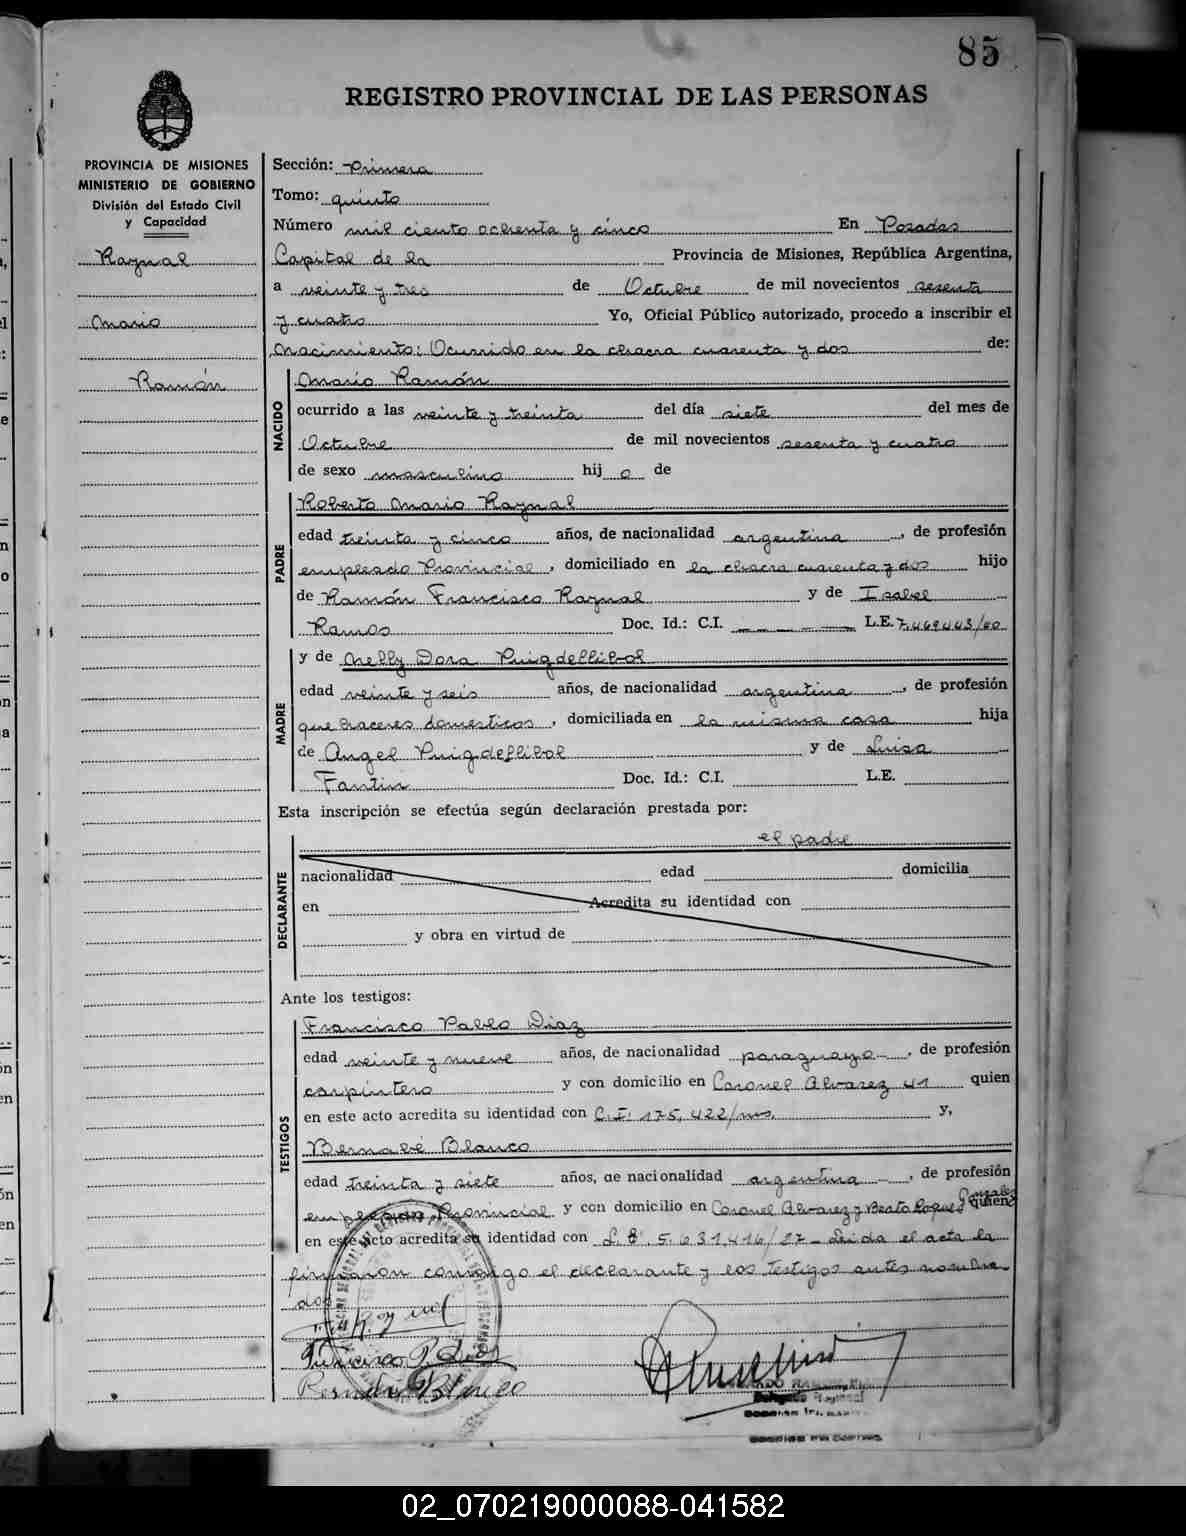 85
REGISTRO PROVINCIAL DE LAS PERSONAS
PROVINCIA DE MISIONES
MINISTERIO DE GOBIERNO
División del Estado Civil
y Capacidad
Raynal
Mario
Ramón
Sección: Primera
Tomo: quinto
Número mil ciento ochenta y cinco En Posadas
Capital de la Provincia de Misiones, República Argentina,
a veinte y tres de Octubre de mil novecientos sesenta
y cuatro Yo, Oficial Público autorizado, procedo a inscribir el
Nacimiento: Ocurrido en la chacra cuarenta y dos de:
NACIDO
Mario Ramón
ocurrido a las veinte y treinta del día siete del mes de
Octubre de mil novecientos sesenta y cuatro
de sexo masculino hij o de
PADRE
Roberto Mario Raynal
edad treinta y cinco años, de nacionalidad argentina, de profesión
empleado Provincial, domiciliado en la chacra cuarenta y dos hijo
de Ramón Francisco Raynal y de Isabel
Ramos Doc. Id.: C.I. L.E. 7.469443/00
MADRE
y de Nelly Dora Puigdellibol
edad veinte y seis años, de nacionalidad argentina, de profesión
quehaceres domesticos, domiciliada en la misma casa hija
de Angel Puigdellibol y de Luisa
Fantin Doc. Id.: C.I. L.E.
Esta inscripción se efectúa según declaración prestada por:
DECLARANTE
el padre
nacionalidad edad domicilia
en Acredita su identidad con
y obra en virtud de
Ante los testigos:
TESTIGOS
Francisco Pablo Diaz
edad veinte y nueve años, de nacionalidad paraguayo, de profesión
carpintero y con domicilio en Coronel Alvarez 41 quien
en este acto acredita su identidad con C.I. 175,422/ms. y,
Bernabé Blanco
edad treinta y siete años, de nacionalidad argentina, de profesión
empleado Provincial y con domicilio en Coronel Alvarez y Beato Roque Gonzalez quien
en este acto acredita su identidad con L.E. 5.631,416/27 - Leida el acta la
firmaron conmigo el declarante y los testigos antes nombra
dos
Francisco P. Diaz
Bernabé Blanco
02_070219000088-041582